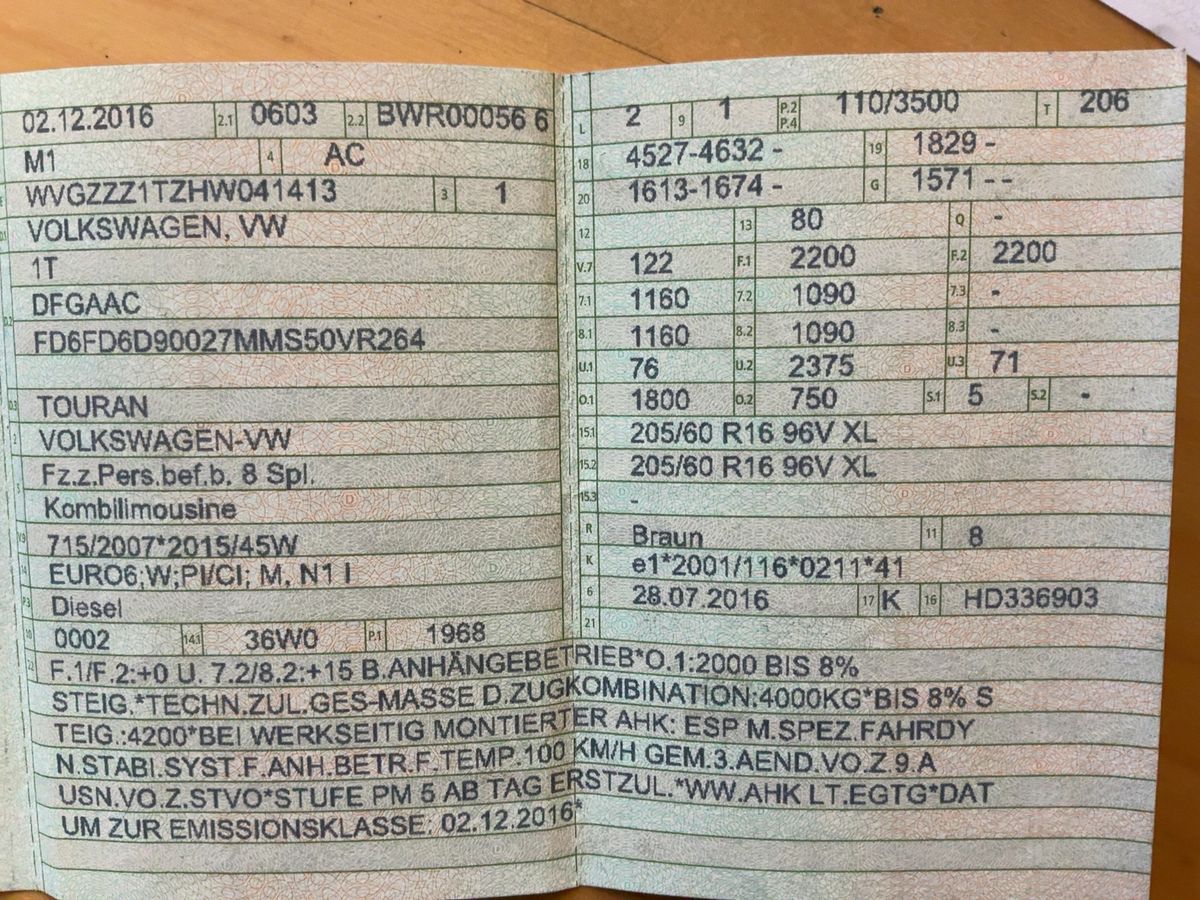 02.12.2016 2.1 0603 2.2 BWR00056 6
M1 4 AC
WVGZZZ1TZHW041413 3 1
VOLKSWAGEN, VW
1T
DFGAAC
FD6FD6D90027MMS50VR264
D.3 TOURAN
2 VOLKSWAGEN-VW
Fz.z.Pers.bef.b. 8 Spl.
5 Kombilimousine
V.9 715/2007*2015/45W
14 EURO6;W;PI/CI; M, N1 I
P.3 Diesel
10 0002 14.1 36W0 P.1 1968
L 2 9 1 P.2 P.4 110/3500 T 206
18 4527-4632 - 19 1829 -
20 1613-1674 - G 1571 - -
12 13 80 Q -
V.7 122 F.1 2200 F.2 2200
7.1 1160 7.2 1090 7.3 -
8.1 1160 8.2 1090 8.3 -
U.1 76 U.2 2375 U.3 71
O.1 1800 O.2 750 S.1 5 S.2 -
15.1 205/60 R16 96V XL
15.2 205/60 R16 96V XL
15.3 -
R Braun 11 8
K e1*2001/116*0211*41
6 28.07.2016 17 K 16 HD336903
21
22 F.1/F.2:+0 U. 7.2/8.2:+15 B.ANHÄNGEBETRIEB*O.1:2000 BIS 8%
STEIG.*TECHN.ZUL.GES-MASSE D.ZUGKOMBINATION:4000KG*BIS 8% S
TEIG.:4200*BEI WERKSEITIG MONTIERTER AHK: ESP M.SPEZ.FAHRDY
N.STABI.SYST.F.ANH.BETR.F.TEMP.100 KM/H GEM.3.AEND.VO.Z.9.A
USN.VO.Z.STVO*STUFE PM 5 AB TAG ERSTZUL.*WW.AHK LT.EGTG*DAT
UM ZUR EMISSIONSKLASSE: 02.12.2016*